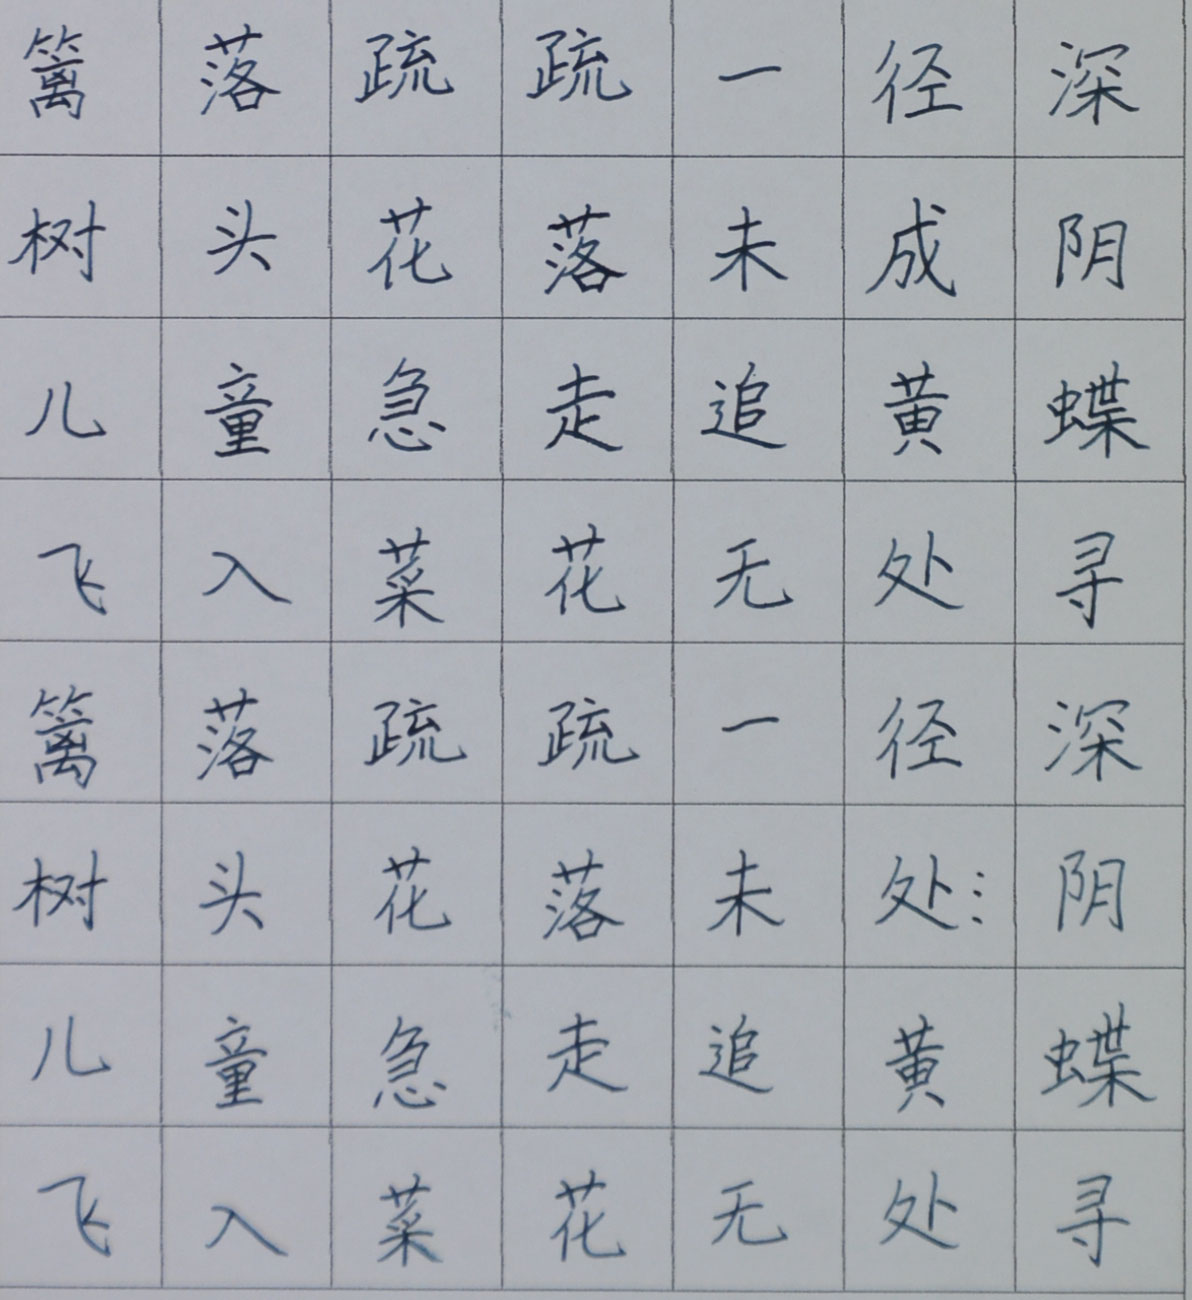 篱落疏疏一径深
树头花落未成阴
儿童急走追黄蝶
飞入菜花无处寻
篱落疏疏一径深
树头花落未处阴
儿童急走追黄蝶
飞入菜花无处寻